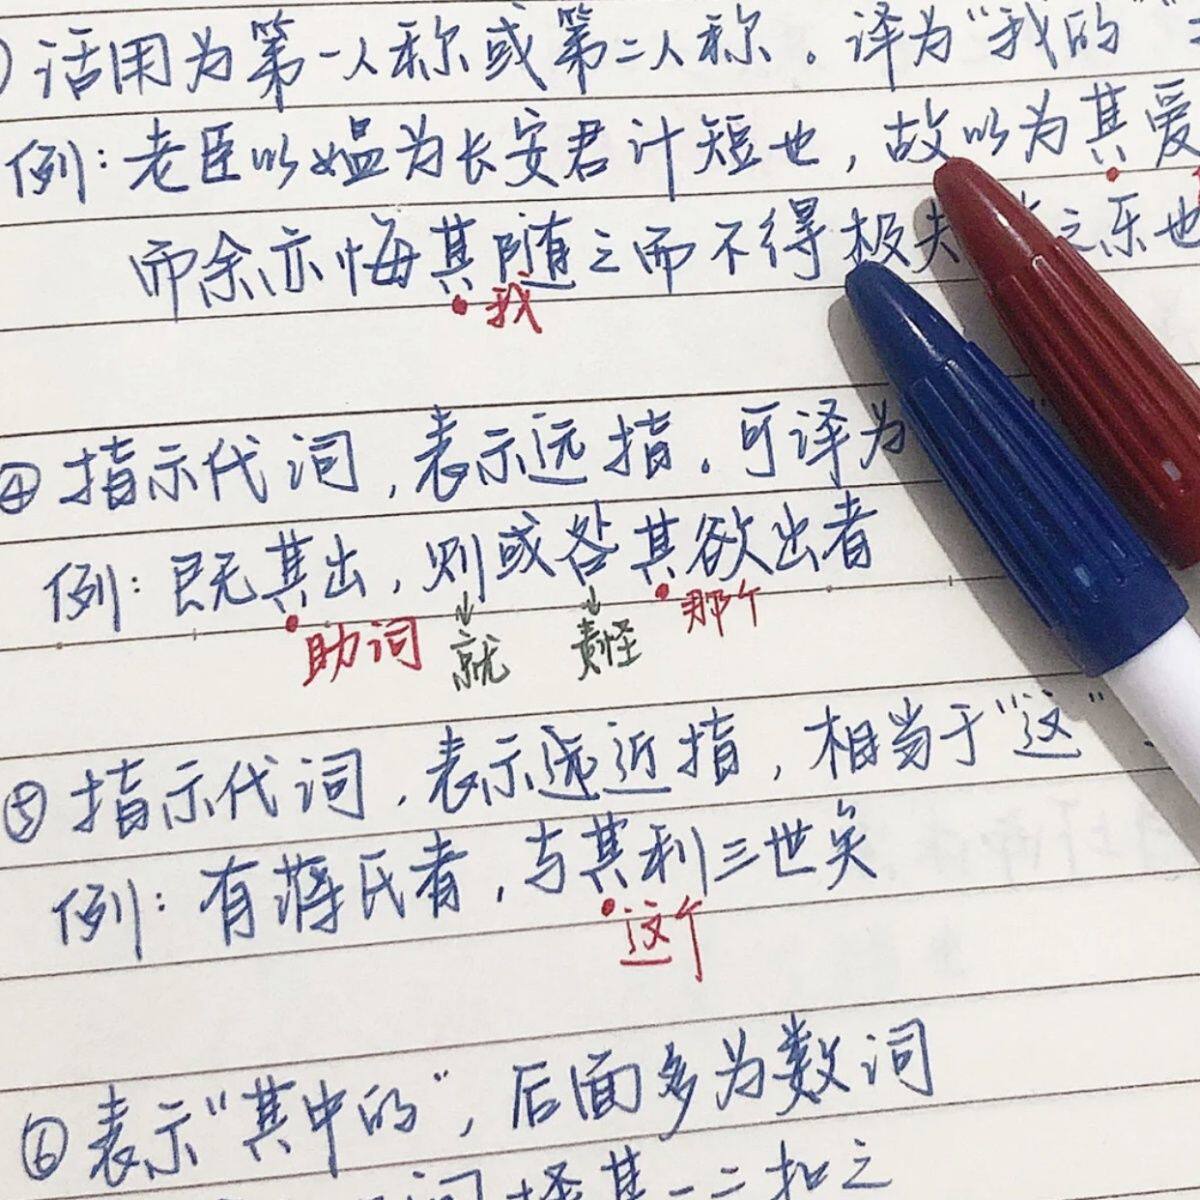 活用为第一人称或第二人称。译为“我的”
例：老臣以媪为长安君计短也，故以为其爱
而余亦悔其随之而不得极夫 之乐也
我
④指示代词，表示远指。可译为
例：既其出，则或咎其欲出者
助词 就 责怪 那个
⑤指示代词，表示 近指，相当于“这”
例：有蒋氏者，与其利三世矣
这个
⑥表示“其中的”，后面多为数词
择其一二扣之